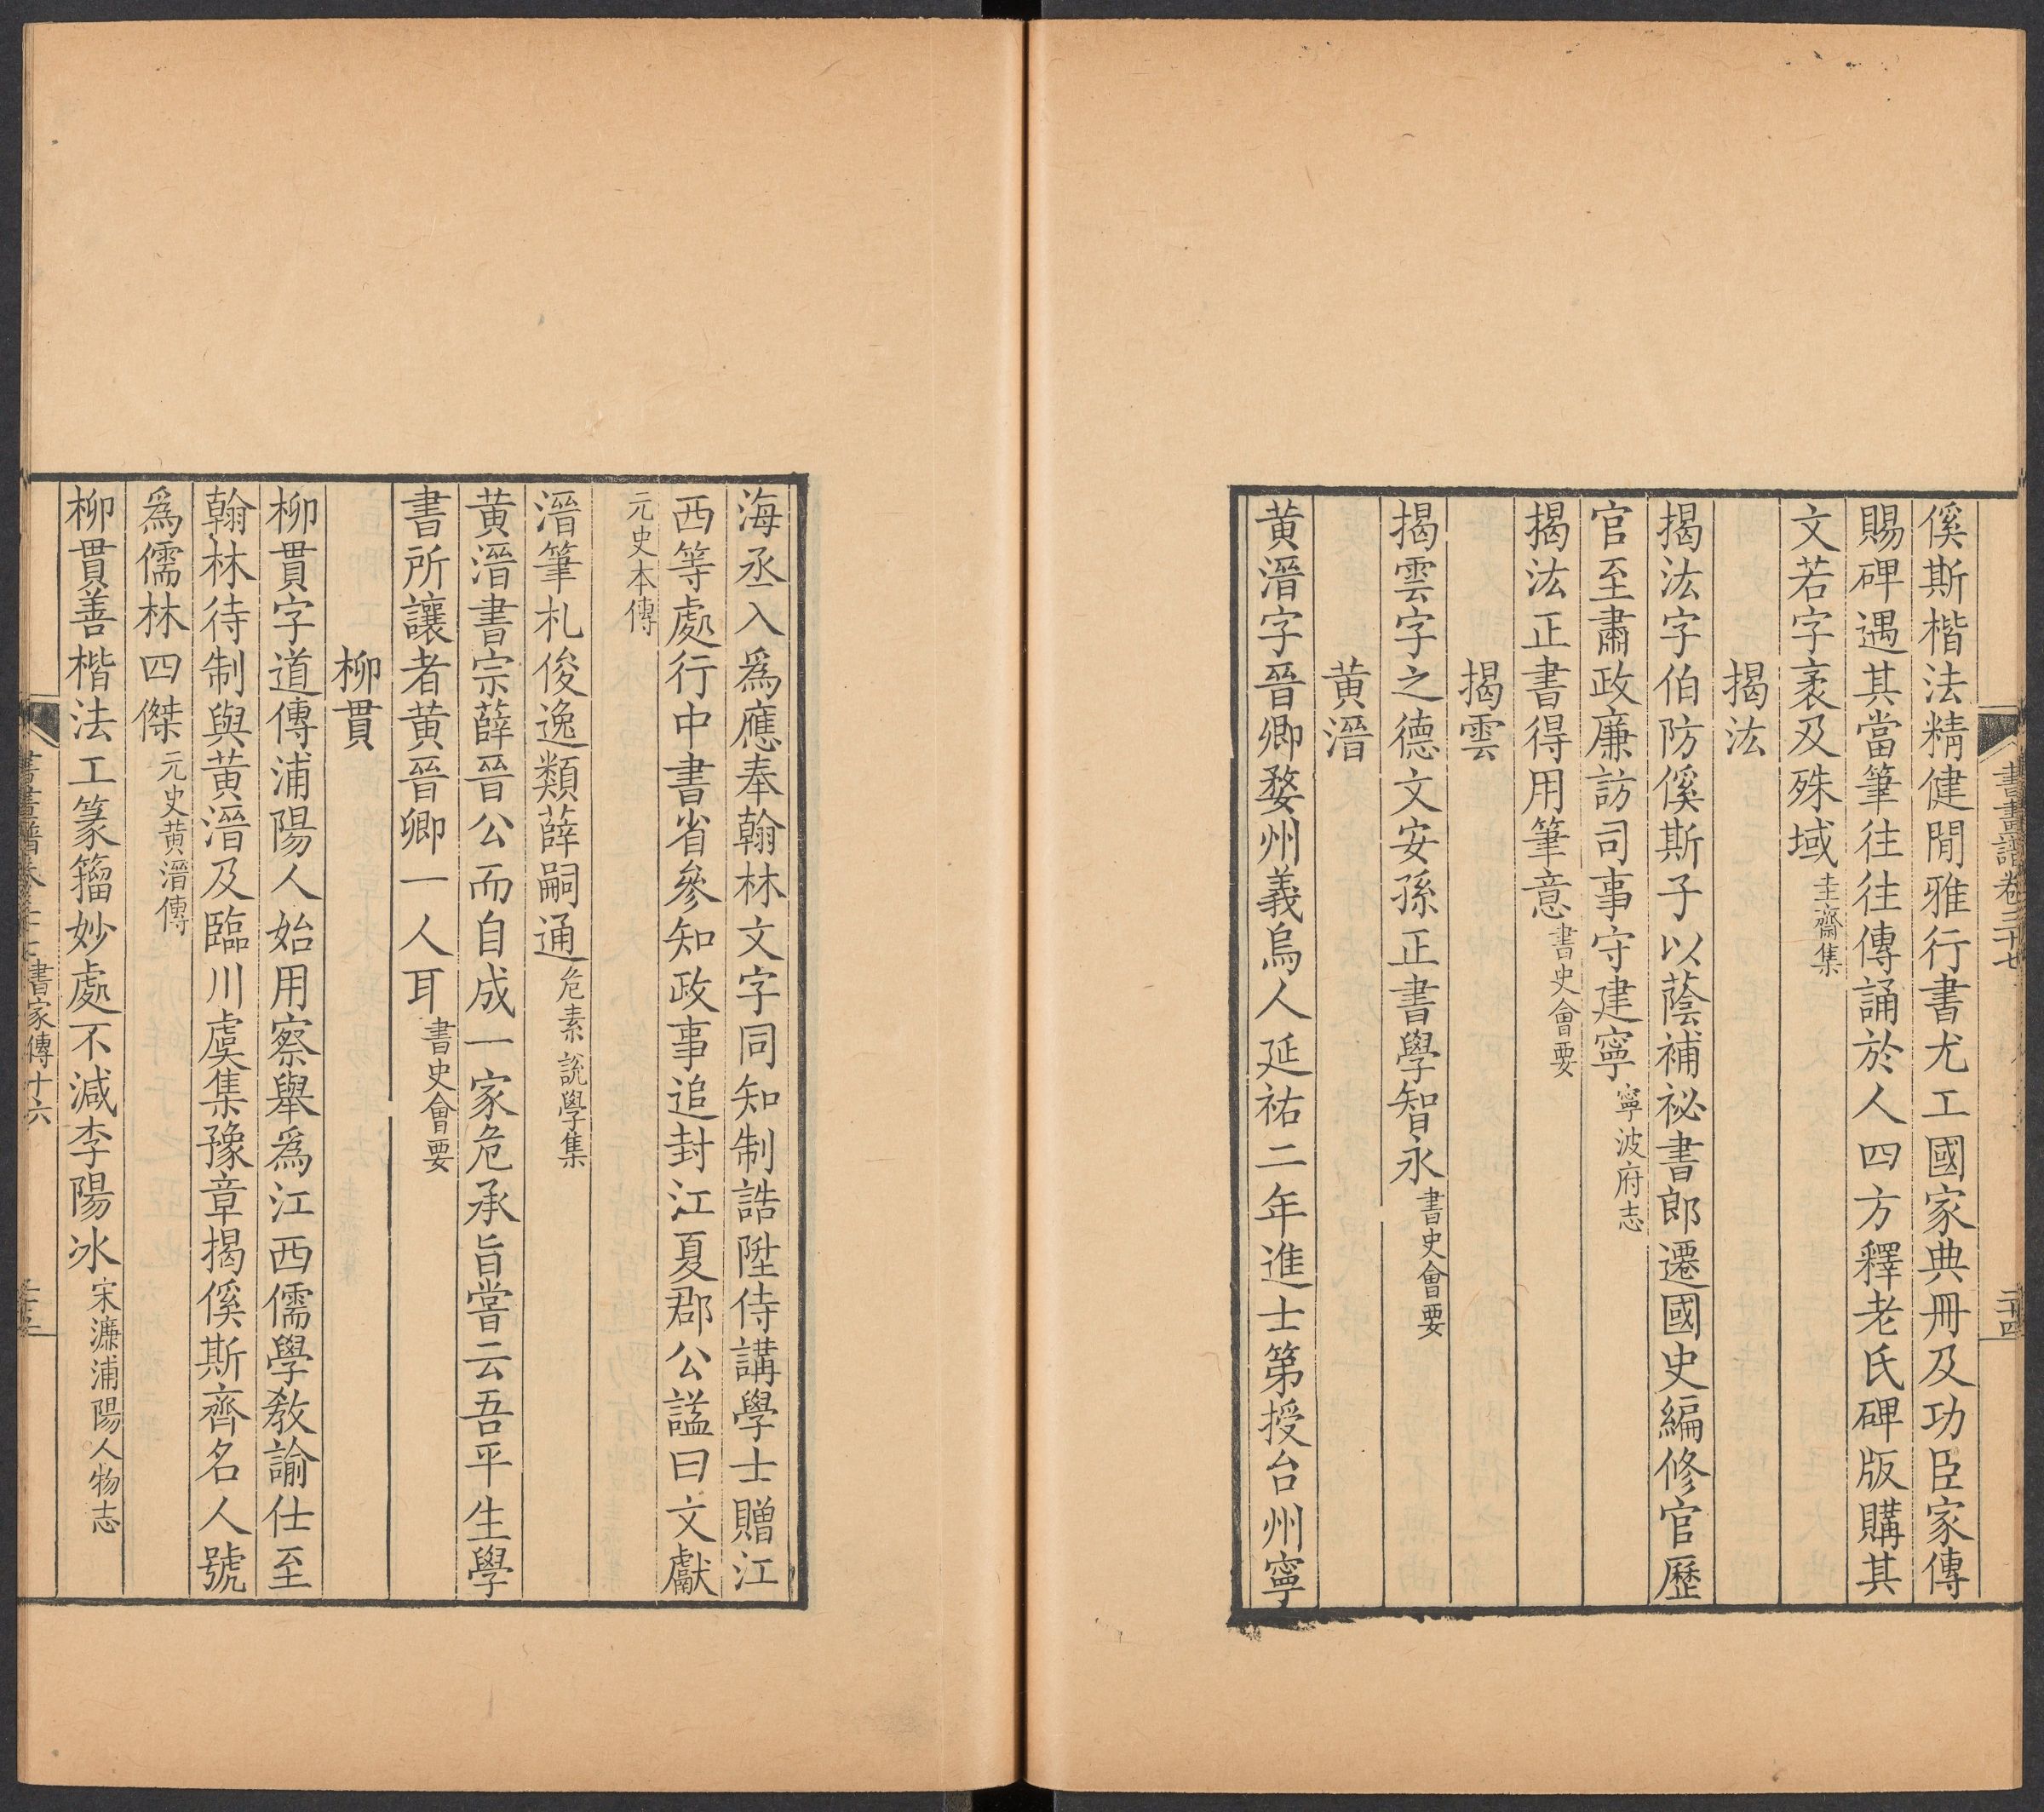 書畫譜卷三十七
二十四
傒斯楷法精健閒雅行書尤工國家典冊及功臣家傳
賜碑遇其當筆往往傳誦於人四方釋老氏碑版購其
文若字袤及殊域圭齋集
揭汯
揭汯字伯防傒斯子以蔭補祕書郎遷國史編修官歷
官至肅政廉訪司事守建寧寧波府志
揭汯正書得用筆意書史會要
揭雲
揭雲字之德文安孫正書學智永書史會要
黄溍
黄溍字晉卿婺州義烏人延祐二年進士第授台州寧
海丞入爲應奉翰林文字同知制誥陞侍講學士贈江
西等處行中書省參知政事追封江夏郡公諡曰文獻
元史本傳
溍筆札俊逸類薛嗣通危素說學集
黄溍書宗薛晉公而自成一家危承旨嘗云吾平生學
書所讓者黄晉卿一人耳書史會要
柳貫
柳貫字道傳浦陽人始用察舉爲江西儒學教諭仕至
翰林待制與黄溍及臨川虞集豫章揭傒斯齊名人號
爲儒林四傑元史黄溍傳
柳貫善楷法工篆籀妙處不減李陽冰宋濂浦陽人物志
書畫譜卷三十七書家傳十六